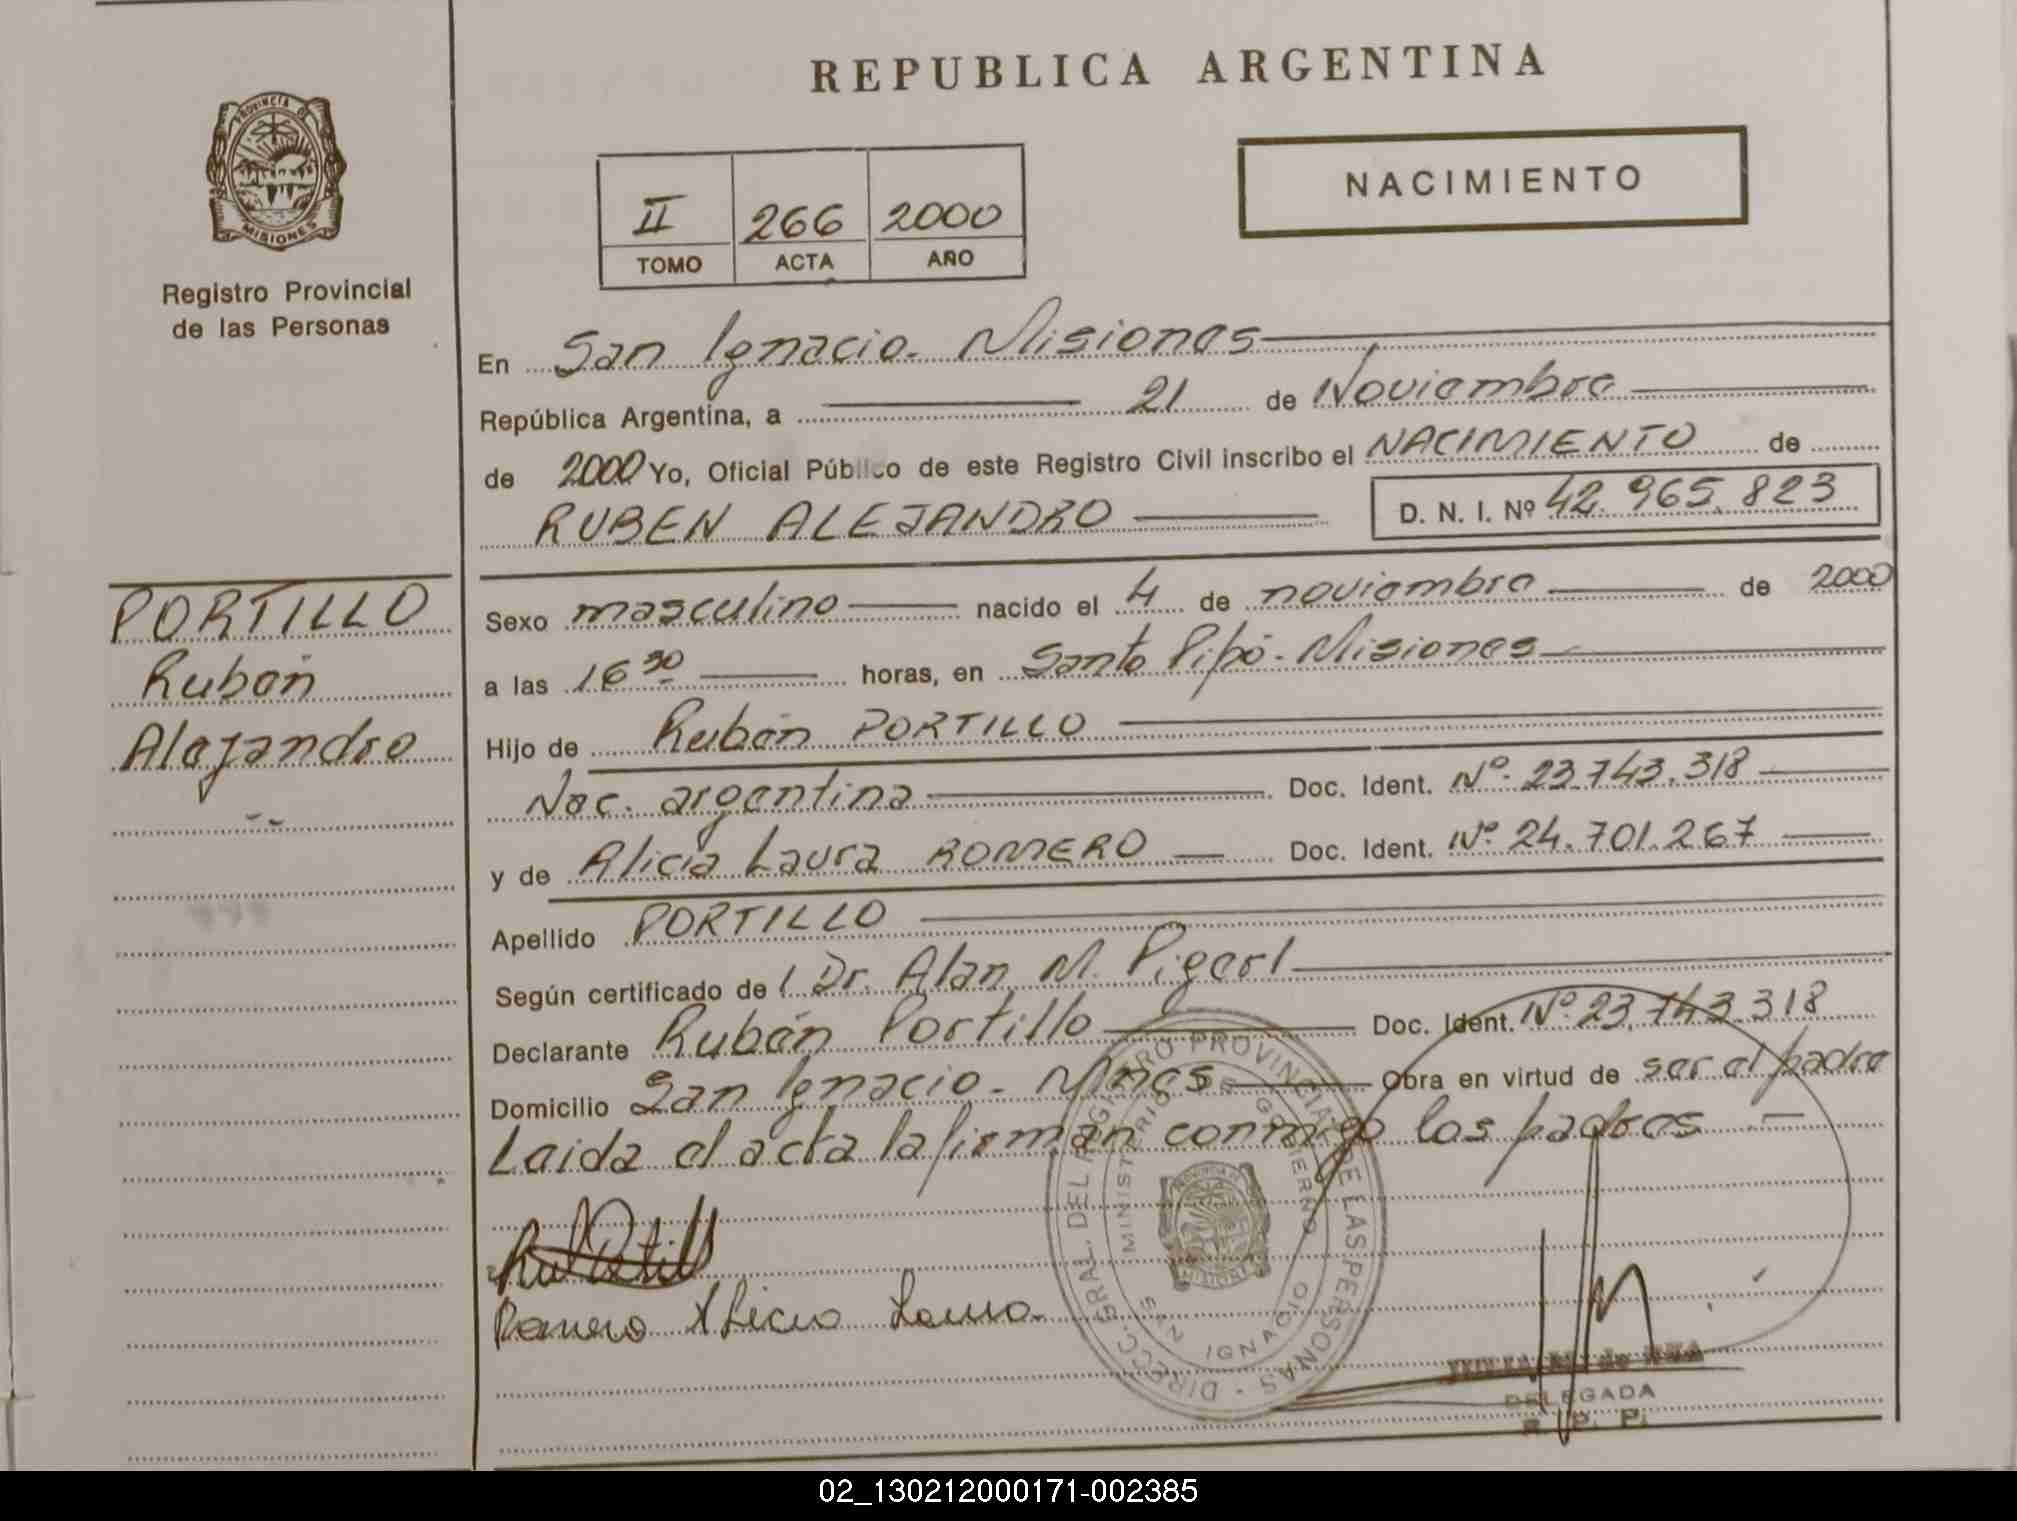 REPUBLICA ARGENTINA
PROVINCIA DE
MISIONES
Registro Provincial
de las Personas
II 266 2000
TOMO ACTA AÑO
NACIMIENTO
En San Ignacio - Misiones
República Argentina, a 21 de Noviembre
de 2000 Yo, Oficial Público de este Registro Civil inscribo el NACIMIENTO de
RUBEN ALEJANDRO D. N. I. Nº 42.965.823
PORTILLO
Rubén
Alejandro
Sexo masculino nacido el 4 de noviembre de 2000
a las 16 30 horas, en Santo Pipó - Misiones
Hijo de Rubén PORTILLO
Nac. argentina Doc. Ident. Nº 23.743.318
y de Alicia Laura ROMERO Doc. Ident. Nº 24.701.267
Apellido PORTILLO
Según certificado de l Dr. Alan M. Pigerl
Declarante Rubén Portillo Doc. Ident. Nº 23.743.318
Domicilio San Ignacio - Mnes Obra en virtud de ser el padre
Leida el acta la firman conmigo los padres
Romero Alicia Laura
DIRECC. GRAL. DEL REGISTRO PROVINCIAL DE LAS PERSONAS
MINISTERIO DE GOBIERNO
SAN IGNACIO
DELEGADA
R. P. P.
02_130212000171-002385